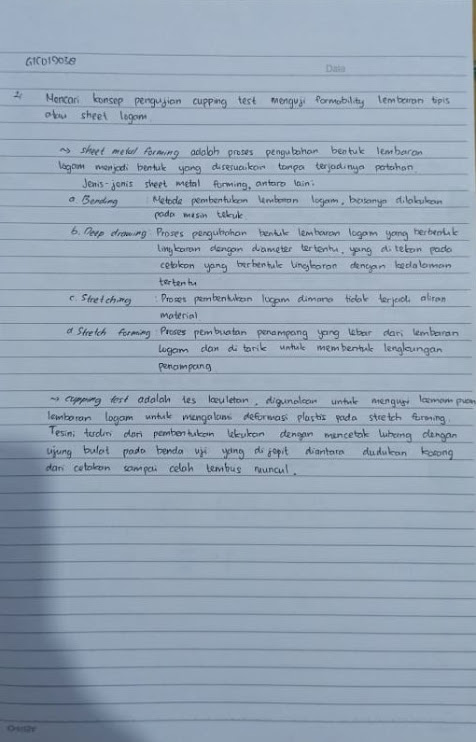 G1C019038
Date
2. Mencari konsep pengujian cupping test menguji formability lembaran tipis
atau sheet logam
~> sheet metal forming adalah proses pengubahan bentuk lembaran
logam menjadi bentuk yang disesuaikan tanpa terjadinya patahan
Jenis-jenis sheet metal forming, antara lain:
a. Bending : Metode pembentukan lembaran logam, biasanya dilakukan
pada mesin tekuk
b. Deep drawing : Proses pengubahan bentuk lembaran logam yang berbentuk
lingkaran dengan diameter tertentu, yang di tekan pada
cetakan yang berbentuk lingkaran dengan kedalaman
tertentu
c. Stretching : Proses pembentukan logam dimana tidak terjadi aliran
material
d Stretch forming : Proses pembuatan penampang yang lebar dari lembaran
logam dan di tarik untuk membentuk lengkungan
penampang
~> cupping test adalah tes keuletan, digunakan untuk menguji kemampuan
lembaran logam untuk mengalami deformasi plastis pada stretch forming.
Tes ini terdiri dari pembentukan lekukan dengan mencetak lubang dengan
ujung bulat pada benda uji yang di jepit diantara dudukan kosong
dari cetakan sampai celah tembus muncul.